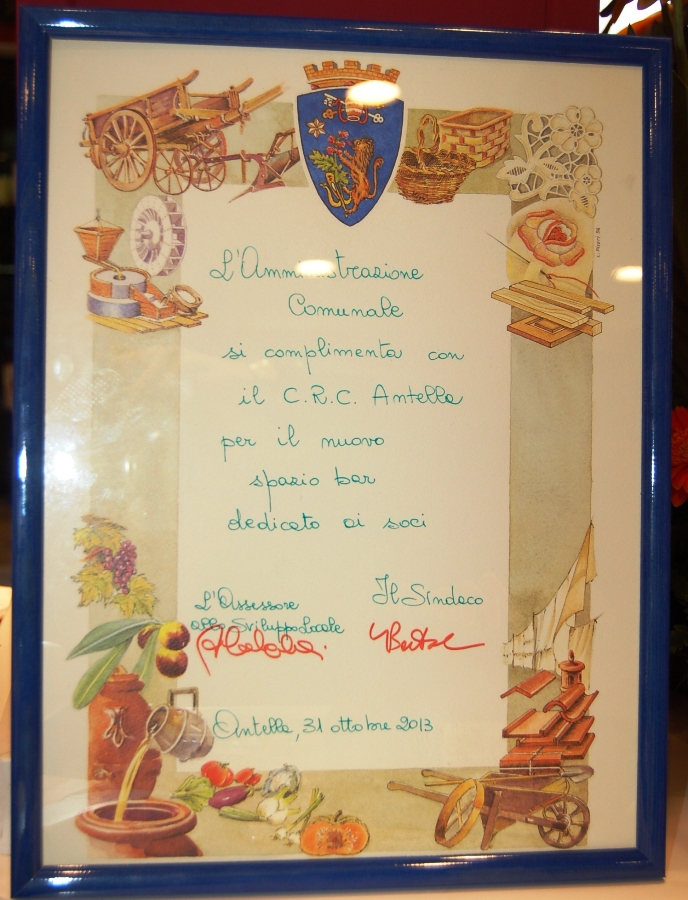 L'Amministrazione
Comunale
si complimenta con
il C.R.C. Antella
per il nuovo
spazio bar
dedicato ai soci
L'Assessore
allo Sviluppo Locale
Il Sindaco
Antella, 31 ottobre 2013